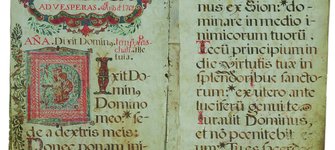 AD VESPERAS.
AÑA. Dixit Domin,
luia.
Dixit Do-
min,
Domino
meo,* se-
de a dextris meis:
Donec ponam ini-
nus ex Sion: do-
minare in medio i-
nimicorum tuorũ.
Tecũ principium in
die virtutis tuæ in
splendoribus sancto-
rum:* ex utero ante
luciferũ genui te.
Iuravit Dominus,
et nõ pœnitebit